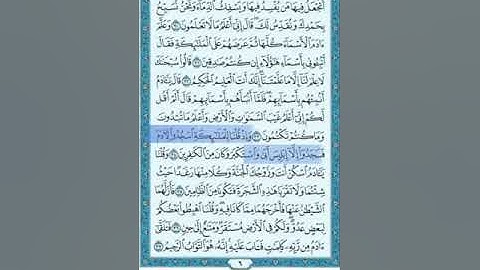 أَتَجْعَلُ فِيهَا مَن يُفْسِدُ فِيهَا وَيَسْفِكُ الدِّمَاءَ وَنَحْنُ نُسَبِّحُ
بِحَمْدِكَ وَنُقَدِّسُ لَكَ ۖ قَالَ إِنِّي أَعْلَمُ مَا لَا تَعْلَمُونَ ٣٠ وَعَلَّمَ
ءَادَمَ الْأَسْمَاءَ كُلَّهَا ثُمَّ عَرَضَهُمْ عَلَى الْمَلَٰئِكَةِ فَقَالَ
أَنۢبِـُٔونِي بِأَسْمَاءِ هَٰؤُلَاءِ إِن كُنتُمْ صَٰدِقِينَ ٣١ قَالُوا سُبْحَٰنَكَ
لَا عِلْمَ لَنَا إِلَّا مَا عَلَّمْتَنَا ۖ إِنَّكَ أَنتَ الْعَلِيمُ الْحَكِيمُ ٣٢ قَالَ يَٰـَٔادَمُ
أَنۢبِئْهُم بِأَسْمَائِهِمْ ۖ فَلَمَّا أَنۢبَأَهُم بِأَسْمَائِهِمْ قَالَ أَلَمْ أَقُل
لَّكُمْ إِنِّي أَعْلَمُ غَيْبَ السَّمَٰوَٰتِ وَالْأَرْضِ وَأَعْلَمُ مَا تُبْدُونَ
وَمَا كُنتُمْ تَكْتُمُونَ ٣٣ وَإِذْ قُلْنَا لِلْمَلَٰئِكَةِ اسْجُدُوا لِءَادَمَ
فَسَجَدُوا إِلَّا إِبْلِيسَ أَبَىٰ وَاسْتَكْبَرَ وَكَانَ مِنَ الْكَٰفِرِينَ ٣٤ وَقُلْنَا
يَٰـَٔادَمُ اسْكُنْ أَنتَ وَزَوْجُكَ الْجَنَّةَ وَكُلَا مِنْهَا رَغَدًا حَيْثُ
شِئْتُمَا وَلَا تَقْرَبَا هَٰذِهِ الشَّجَرَةَ فَتَكُونَا مِنَ الظَّٰلِمِينَ ٣٥ فَأَزَلَّهُمَا
الشَّيْطَٰنُ عَنْهَا فَأَخْرَجَهُمَا مِمَّا كَانَا فِيهِ ۖ وَقُلْنَا اهْبِطُوا بَعْضُكُمْ
لِبَعْضٍ عَدُوٌّ ۖ وَلَكُمْ فِي الْأَرْضِ مُسْتَقَرٌّ وَمَتَٰعٌ إِلَىٰ حِينٍ ٣٦ فَتَلَقَّىٰ
ءَادَمُ مِن رَّبِّهِ كَلِمَٰتٍ فَتَابَ عَلَيْهِ ۚ إِنَّهُ هُوَ التَّوَّابُ الرَّحِيمُ ٣٧
٦